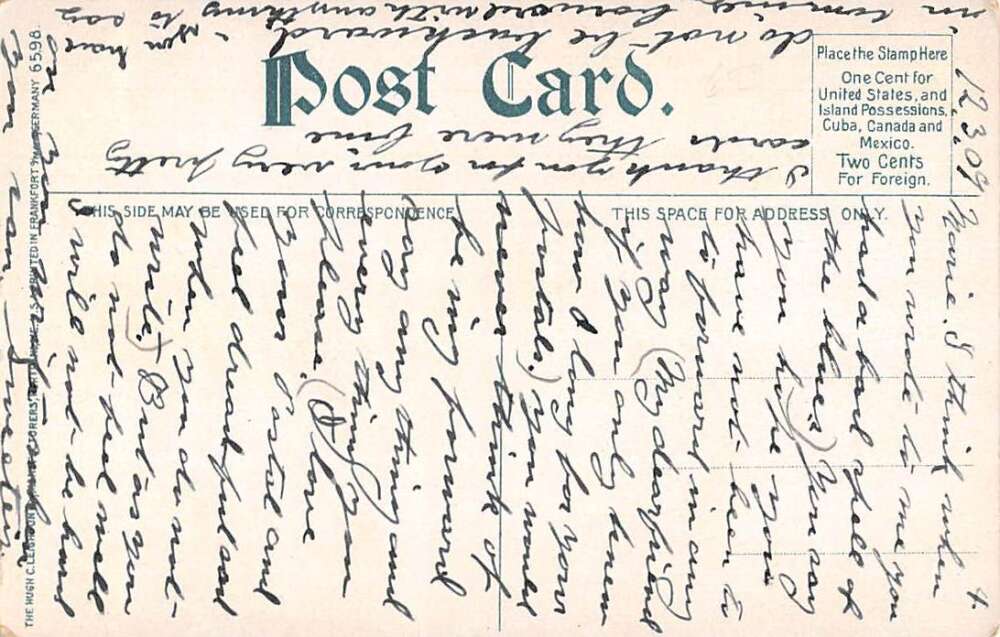 Post Card.
Place the Stamp Here
One Cent for
United States, and
Island Possessions,
Cuba, Canada and
Mexico.
Two Cents
For Foreign.
THIS SIDE MAY BE USED FOR CORRESPONDENCE
THIS SPACE FOR ADDRESS ONLY.
12.3.09
4.
I think when
you wrote to me you
had a bad spell of
the blues) You say
you hope you
have not been to
to forward in any
way (My dear friend
if you only knew
how I long for your
postals.) you would
never think of
be ing forward
say any thing and
every thing you
please. (I love
your Postal and
feel dreadful sad
when you do not-
write.) But as you
do not feel well
I will not be hard
on
I thank you for your very pretty
cards they were fine
do not be backward
in comming forward with anything
you have to say
THE HUGH C. LEIGHTON
PRINTED IN FRANKFORT
GERMANY 6598